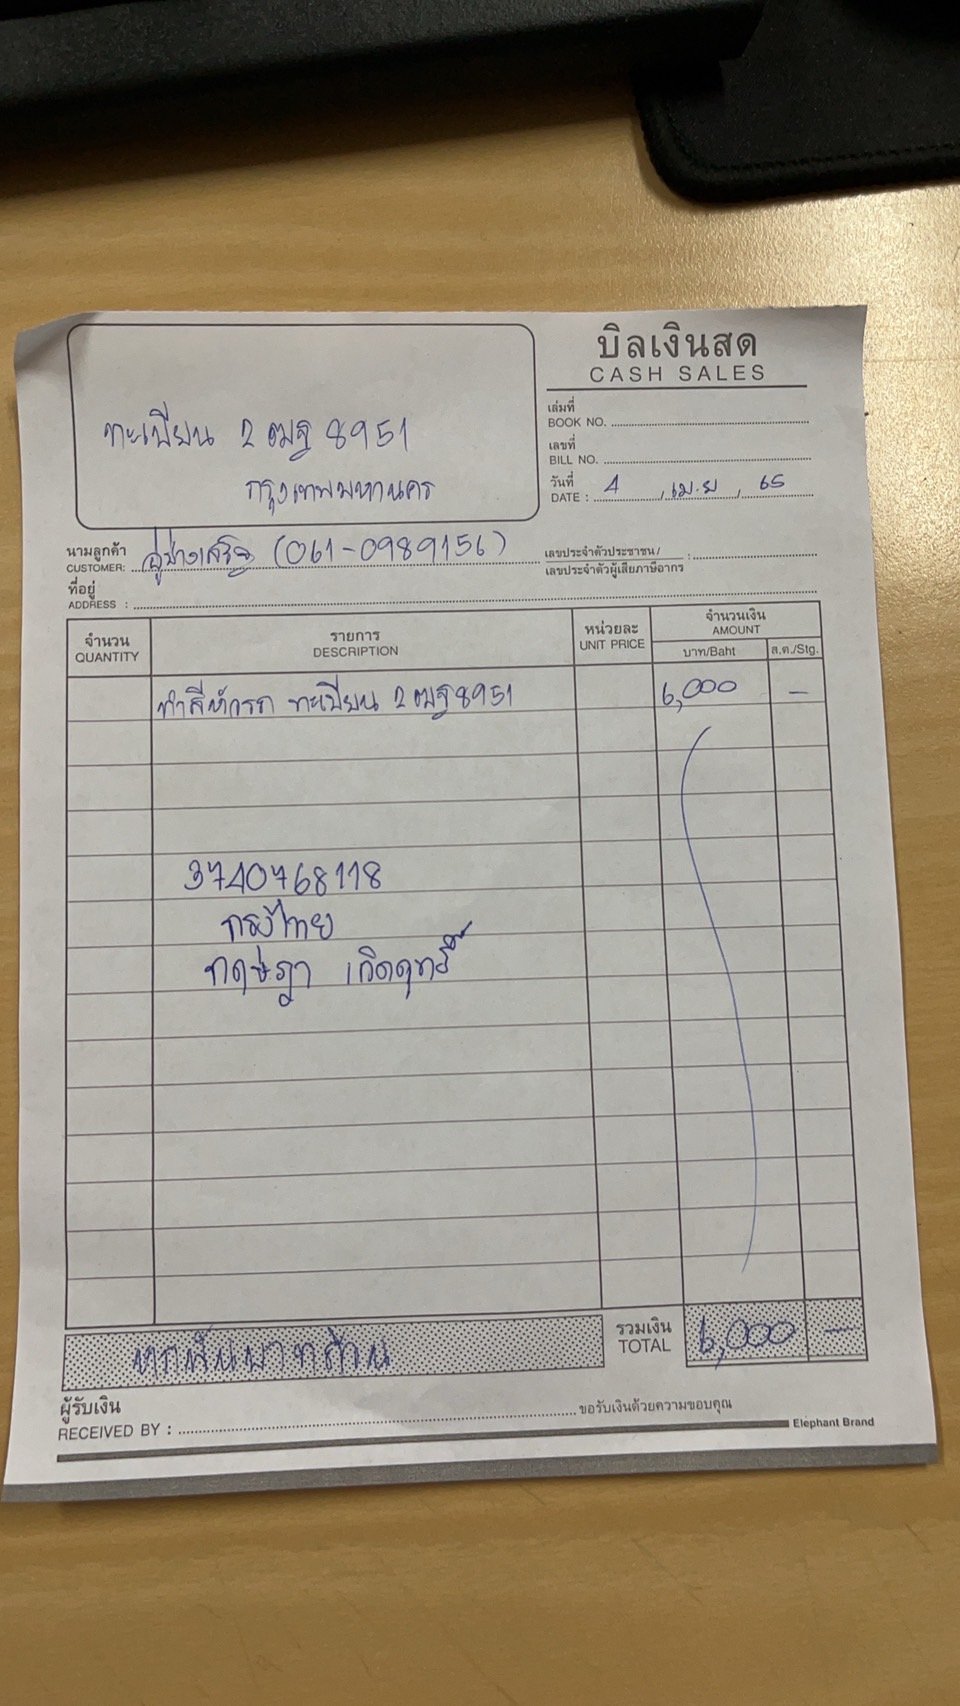 บิลเงินสด
CASH SALES
ทะเบียน 2 ฒฐ 8951
กรุงเทพมหานคร
เล่มที่
BOOK NO.
เลขที่
BILL NO.
วันที่
DATE : 4 / เม.ย / 65
นามลูกค้า
CUSTOMER: อู่ช่างเสริฐ (061-0989156)
เลขประจำตัวประชาชน /
เลขประจำตัวผู้เสียภาษีอากร :
ที่อยู่
ADDRESS :
จำนวน
QUANTITY
รายการ
DESCRIPTION
หน่วยละ
UNIT PRICE
จำนวนเงิน
AMOUNT
บาท/Baht ส.ต./Stg.
ทำสีหัวรถ ทะเบียน 2 ฒฐ 8951 6,000 –
3740768118
กรุงไทย
กฤษฎา
หกพันบาทถ้วน
รวมเงิน
TOTAL 6,000 –
ผู้รับเงิน
RECEIVED BY : ขอรับเงินด้วยความขอบคุณ
Elephant Brand